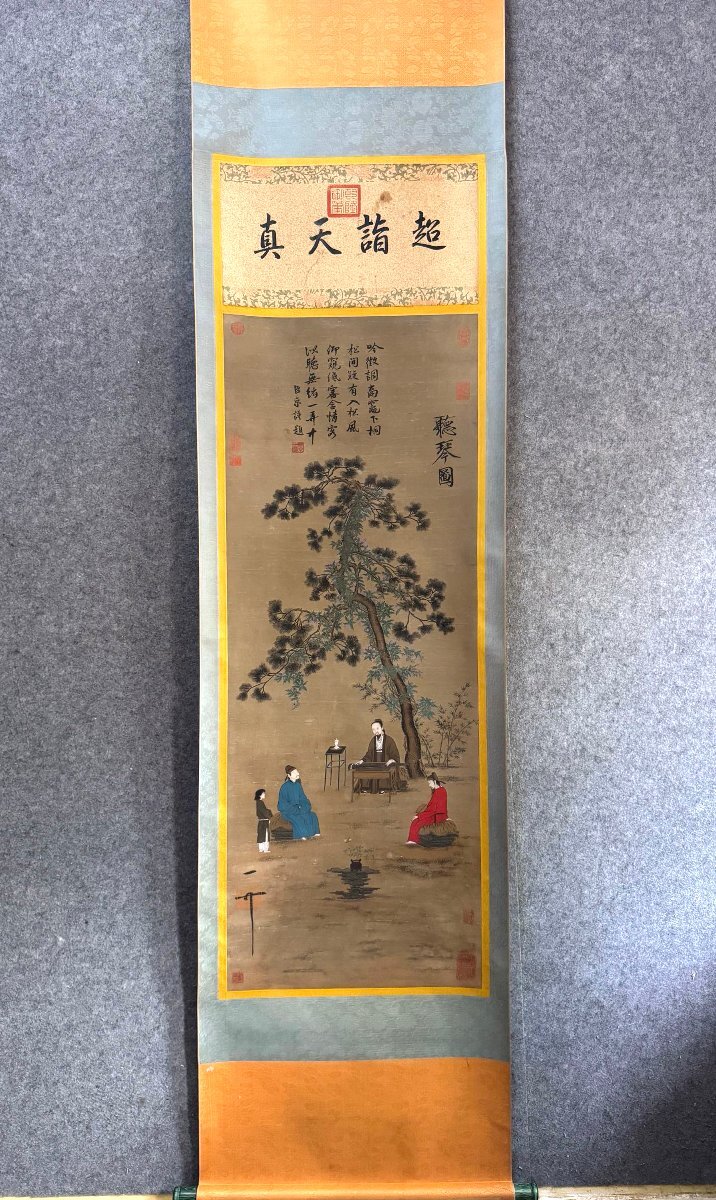 超詣天真
聽琴圖
吟徵調商竈下桐
松間疑有入松風
仰窺低審含情客
以聽無絃一弄中
臣京謹題